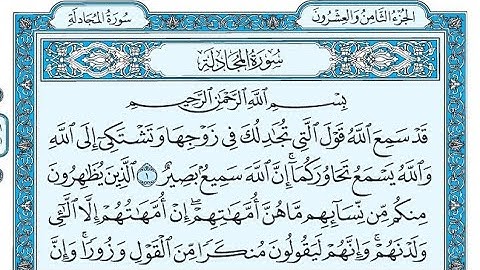 الجزء الثامن والعشرون
سورة المجادلة
سُورَةُ المُجَادلَة
بِسْمِ اللَّهِ الرَّحْمَٰنِ الرَّحِيمِ
قَدْ سَمِعَ اللَّهُ قَوْلَ الَّتِي تُجَادِلُكَ فِي زَوْجِهَا وَتَشْتَكِي إِلَى اللَّهِ
وَاللَّهُ يَسْمَعُ تَحَاوُرَكُمَا ۚ إِنَّ اللَّهَ سَمِيعٌ بَصِيرٌ ١ الَّذِينَ يُظَاهِرُونَ
مِنكُم مِّن نِّسَائِهِم مَّا هُنَّ أُمَّهَاتِهِمْ ۖ إِنْ أُمَّهَاتُهُمْ إِلَّا اللَّائِي
وَلَدْنَهُمْ ۚ وَإِنَّهُمْ لَيَقُولُونَ مُنكَرًا مِّنَ الْقَوْلِ وَزُورًا ۚ وَإِنَّ